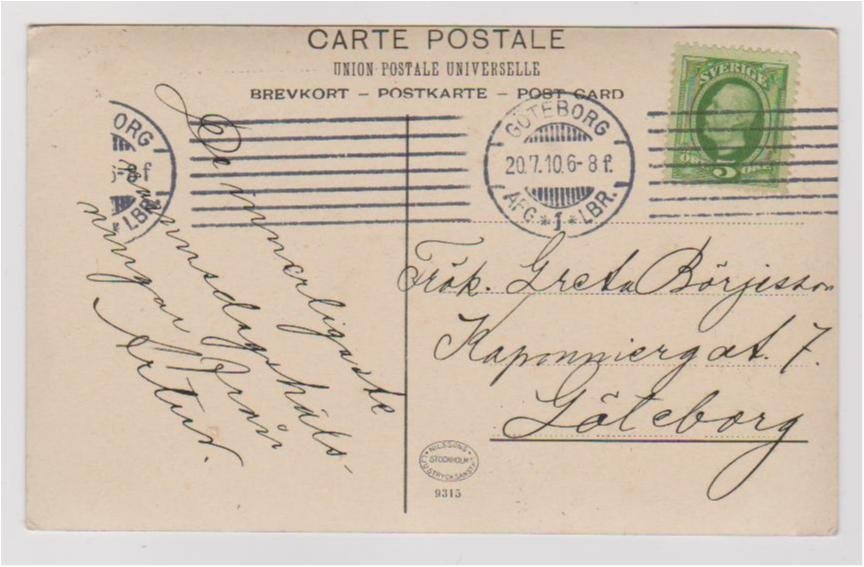 CARTE POSTALE
UNION POSTALE UNIVERSELLE
BREVKORT – POSTKARTE – POST CARD
SVERIGE
5 ÖRE
GÖTEBORG
20.7.10.6-8 f.
AFG.*1*LBR.
ORG
6-8 f
LBR.
De innerligaste
namnsdagshäls-
ningar från
Artur.
Frök. Greta Börjisson
Kaponniergat. 7.
Göteborg
NILSSONS
STOCKHOLM
LJUSTRYCKSANST.
9315